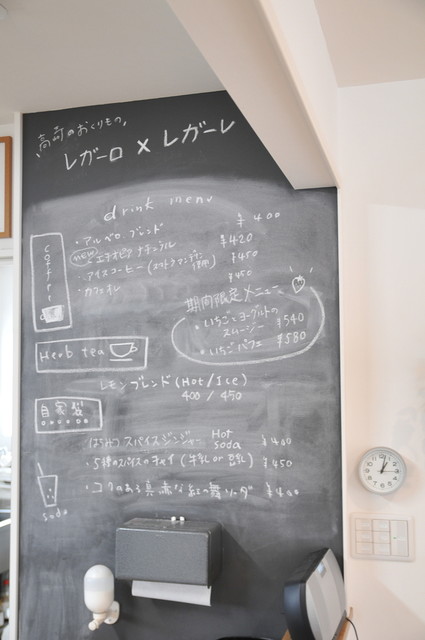 高崎のおくりもの
レガーロ × レガーレ
drink menu
coffee
・アルベロ ブレンド ¥400
new エチオピア ナチュラル ¥420
・アイスコーヒー (スマトラマンデリン使用) ¥450
・カフェオレ ¥450
期間限定メニュー
・いちごとヨーグルトの
スムージー ¥540
・いちごパフェ ¥580
Herb tea
レモンブレンド (Hot/Ice)
400 / 450
自家製
はちみつ スパイスジンジャー Hot soda ¥400
・5種のスパイスのチャイ (牛乳 or 豆乳) ¥450
・コクのある真赤な の舞ソーダ ¥400
soda